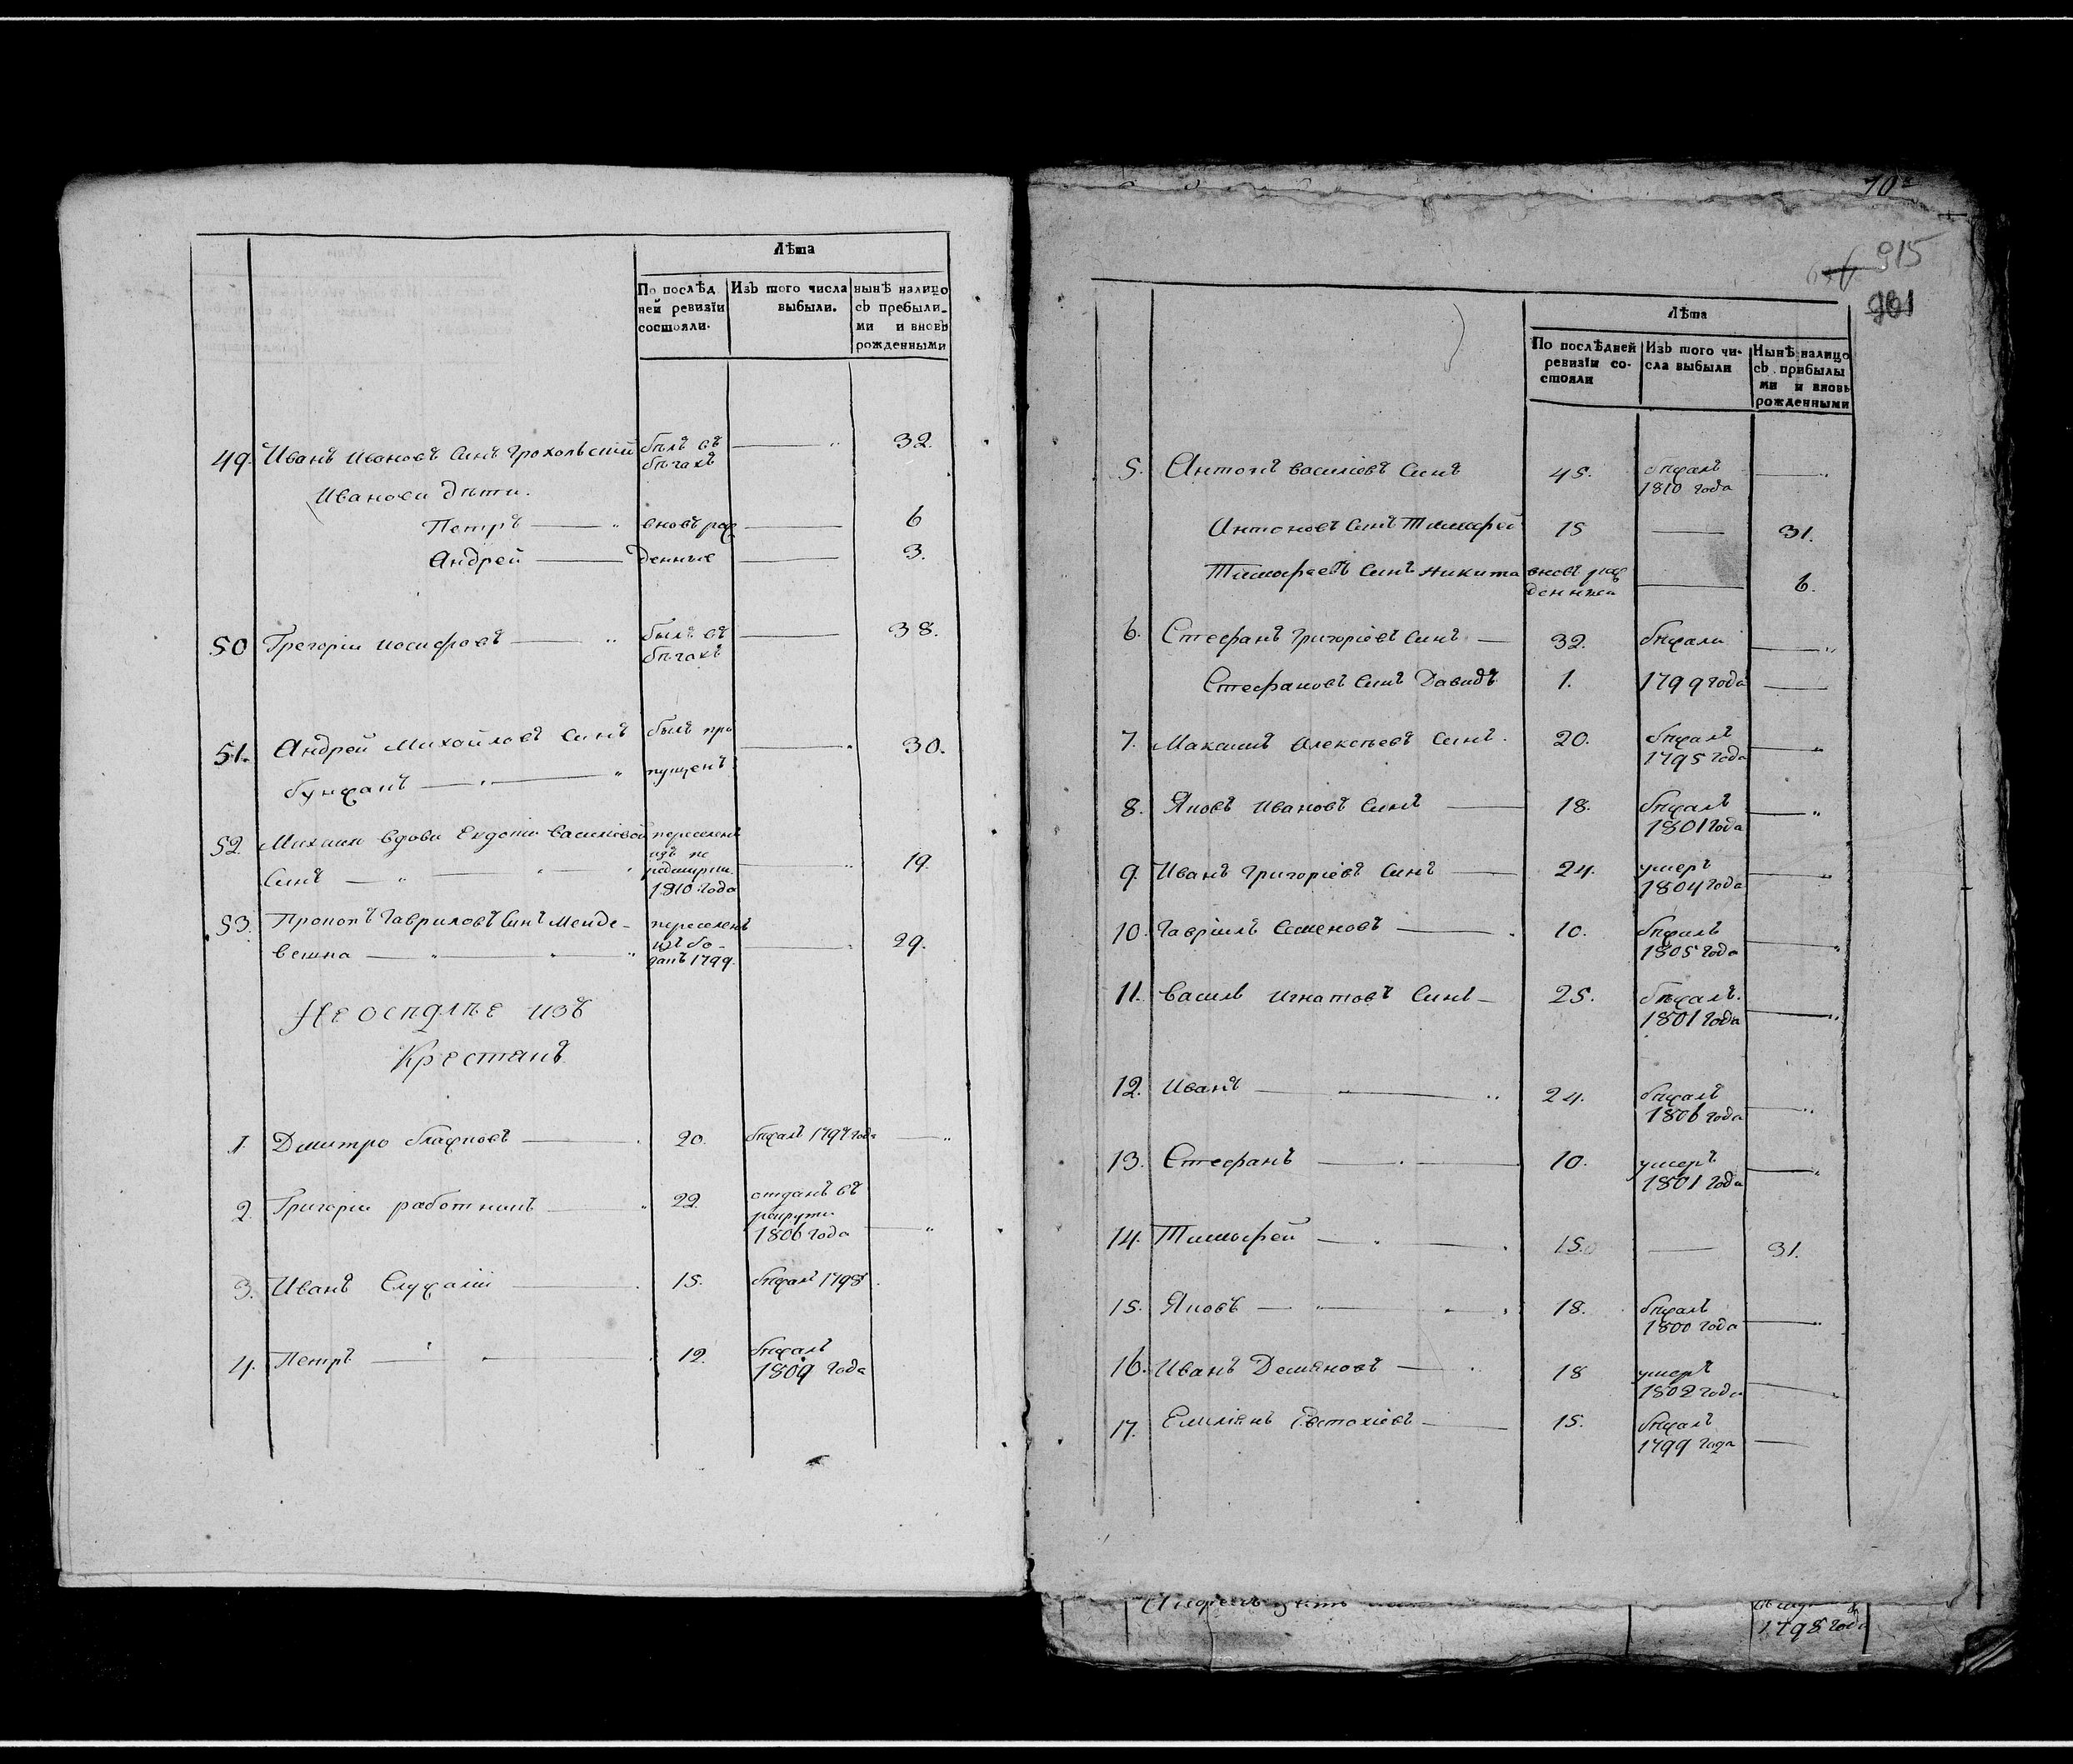 Лѣта
По послѣд Изъ того числа нынѣ налицо
ней ревизїи выбыли. съ пребыли-
состояли. ми и вновь
рожденными
49. Иванъ Ивановъ Синъ Грохольскїй былъ въ 32.
бѣгахъ
Иванови дѣти.
Петръ вновь рож 6
Андрей денные 3.
50 Грегорiи иосифовъ былъ въ 38.
бѣгахъ
51. Андрей Михайловъ Синъ былъ про 30.
пущенъ
52. Михаил вдови Евдокiи Василiевой переселенъ
Синъ 19.
1810 года
53. Прокопъ Гавриловъ Синъ Менде- переселенъ
вешка изъ бо- 29.
1799.
Неоспдлые изъ
Крестянъ
1. Дмитро 20. бѣжалъ 1797 года
2. Григорiи работникъ 22. отданъ въ
рекрути
1806 года
3. Иванъ Служащiй 15. бѣжалъ 1798
4. Петръ 12. бѣжалъ
1809 года
915
961
Лѣта
По послѣдней Изъ того чи- Нынѣ налицо
ревизїи со- сла выбыли съ прибылы
стояли ми и вновь
рожденными
5. Антонъ Василiевъ Синъ 45. бѣжалъ
1810 года
Антоновъ Синъ Тимофей 15 31.
Тимофеевъ Синъ Никита вновь рож 6.
денныи
6. Стефанъ Григорiевъ Синъ 32. бѣжали
Стефановъ Синъ Давидъ 1. 1799 года
7. Максимъ Алексѣевъ Синъ. 20. бѣжалъ
1795 года
8. Яковъ Ивановъ Синъ 18. бѣжалъ
1801 года
9. Иванъ Григорiевъ Синъ 24. умеръ
1804 года
10. Гаврiилъ Семеновъ 10. бѣжалъ
1805 года
11. Василь Игнатовъ Синъ 25. бѣжалъ.
1801 года
12. Иванъ 24. бѣжалъ
1806 года
13. Стефанъ 10. умеръ
1801 года
14. Тимофей 15. 31.
15. Яковъ 18. бѣжалъ
1800 года
16. Иванъ Демяновъ 18 умеръ
1802 года
17. Емилiянъ Евстахiевъ 15. бѣжалъ
1799 года
1798 года